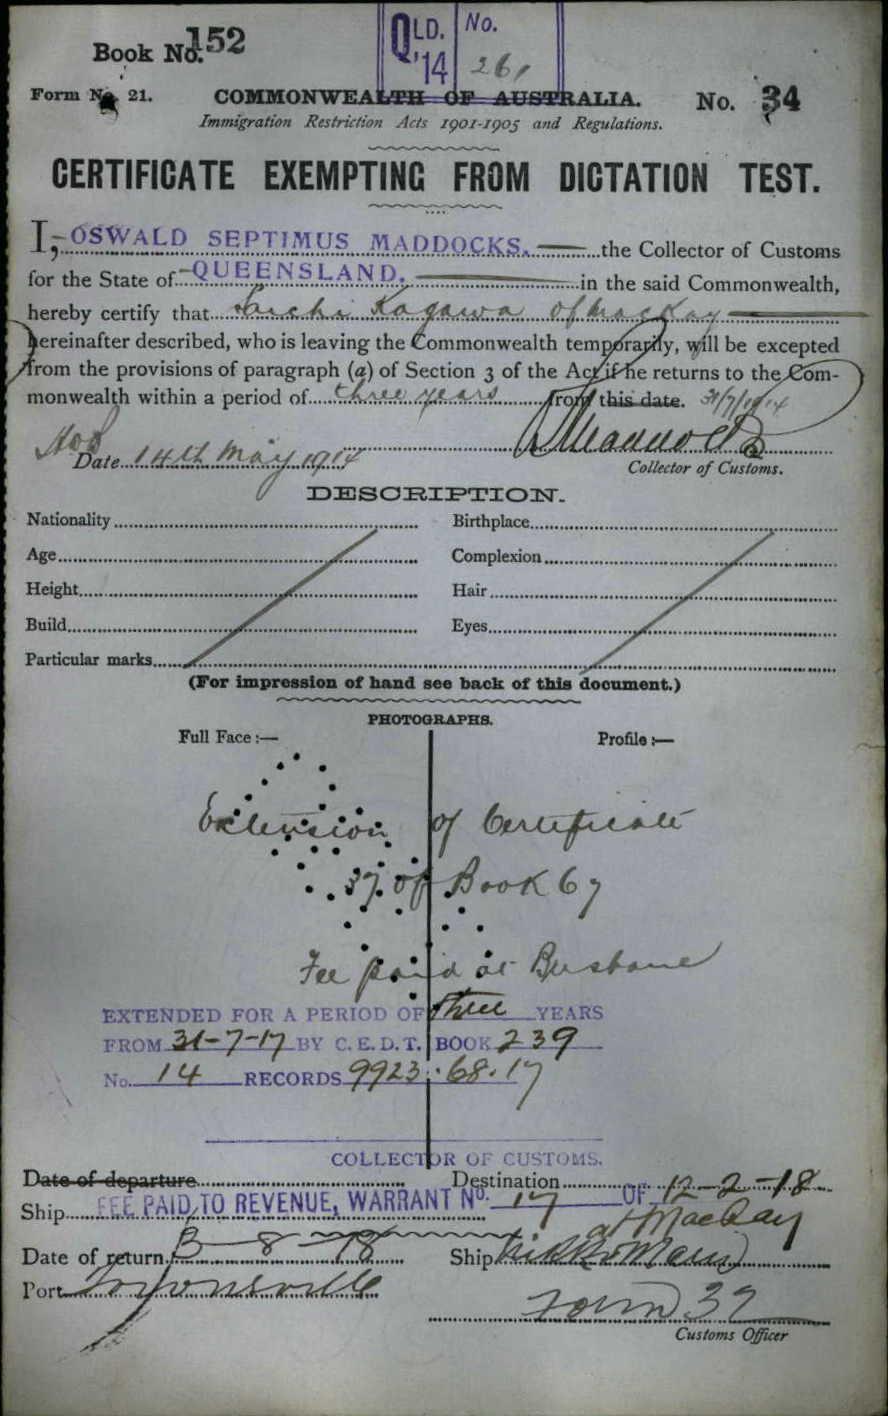 Book No. 152
QLD. '14
No. 261
Form No. 21.
COMMONWEALTH OF AUSTRALIA.
No. 34
Immigration Restriction Acts 1901-1905 and Regulations.
CERTIFICATE EXEMPTING FROM DICTATION TEST.
I, OSWALD SEPTIMUS MADDOCKS. the Collector of Customs
for the State of QUEENSLAND. in the said Commonwealth,
hereby certify that Saichi Kagawa of Mackay
hereinafter described, who is leaving the Commonwealth temporarily, will be excepted
from the provisions of paragraph (a) of Section 3 of the Act if he returns to the Com-
monwealth within a period of three years from this date. 31/7/1914
Date 14th May 1914
Collector of Customs.
DESCRIPTION.
Nationality Birthplace
Age Complexion
Height Hair
Build Eyes
Particular marks
(For impression of hand see back of this document.)
PHOTOGRAPHS.
Full Face :— Profile :—
Extension of Certificate
37 of Book 67
Fee paid at Brisbane
EXTENDED FOR A PERIOD OF three YEARS
FROM 31-7-17 BY C.E.D.T. BOOK 239
No. 14 RECORDS 9923.68.17
COLLECTOR OF CUSTOMS.
Date of departure Destination
FEE PAID TO REVENUE, WARRANT No. 17 OF 12-2-18
Ship at Mackay
Date of return 3-8-18 Ship Nikko Maru
Port Townsville
Form 32
Customs Officer